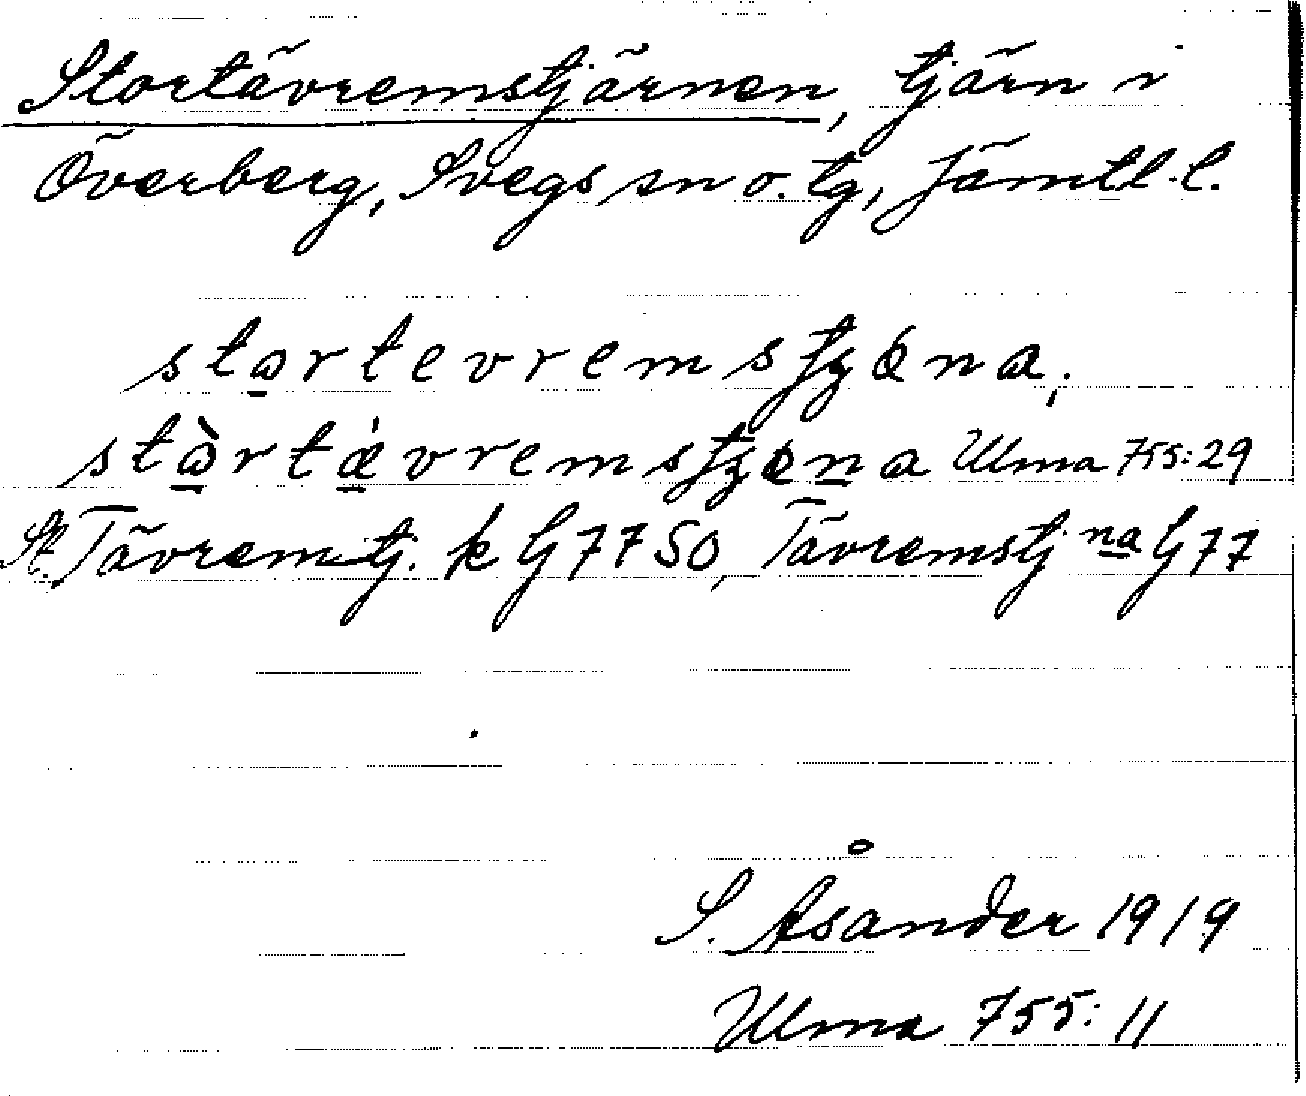 Stortävremstjärnen, tjärn i
Överberg, Svegs sn o. tg, Jämtl. l.
stortevremstjøna,
stòrtǽvremstjøna Ulma 755:29
St. Tävremtj. k G7750, Tävremstjna G77
S. Åsander 1919
Ulma 755:11